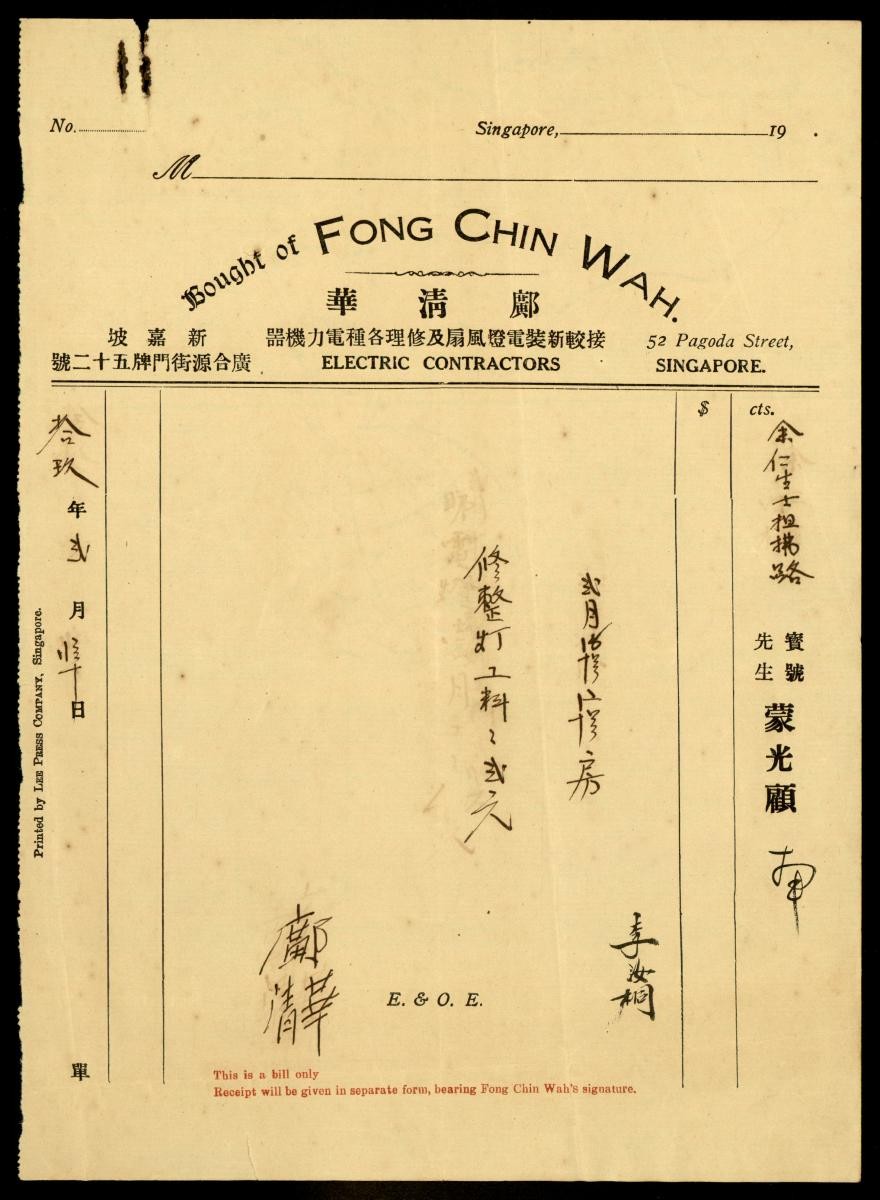 No.
Singapore, 19 .
M
Bought of FONG CHIN WAH.
華清鄺
器機力電種各理修及扇風燈電裝新較接
ELECTRIC CONTRACTORS
坡嘉新
號二十五牌門街源合廣
52 Pagoda Street,
SINGAPORE.
$ cts.
余仁生士担拂路
寶號
先生
蒙光顧
弍月
房
修整灯工料弍元
李汝桐
鄺清華
拾玖年弍月 日
單
E. & O. E.
This is a bill only
Receipt will be given in separate form, bearing Fong Chin Wah's signature.
Printed by LEE PRESS COMPANY, Singapore.